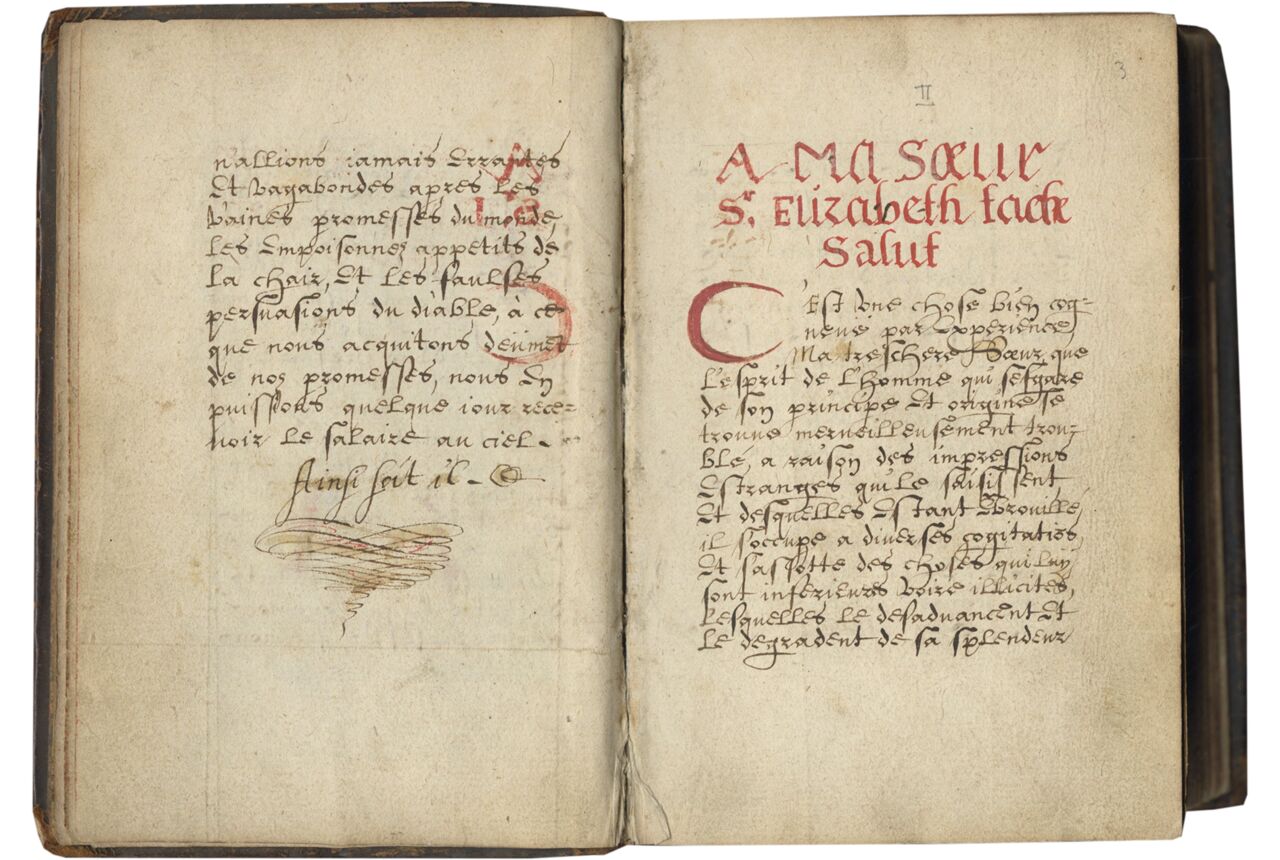 n'allions iamais errantes
Et vagabondes apres les
vaines promesses du monde,
les empoisonnez appetits de
la chair, Et les faulses
persuasions du diable, à ce
que nous acquitons deüment
de noz promesses, nous en
puissions quelque iour rece=
voir le salaire au ciel.
Ainsi soit il.
3
II
A MA Sœur
Sr. Elizabeth
Salut
C'Est vne chose bien cog=
neüe par Experience
Ma treschere Sœur, que
l'esprit de l'homme qui sesgare
de son principe Et origine se
trouve merveilleusement trou=
blé, a raison des impressions
Estranges qui le saisissent
Et desquelles Estant Ebrouillé,
il s'occupe a diverses cogitatiõs,
Et sassotte des choses qui luy
sont inferieures voire illicites,
lesquelles le desaduancent Et
le degradent de sa splendeur